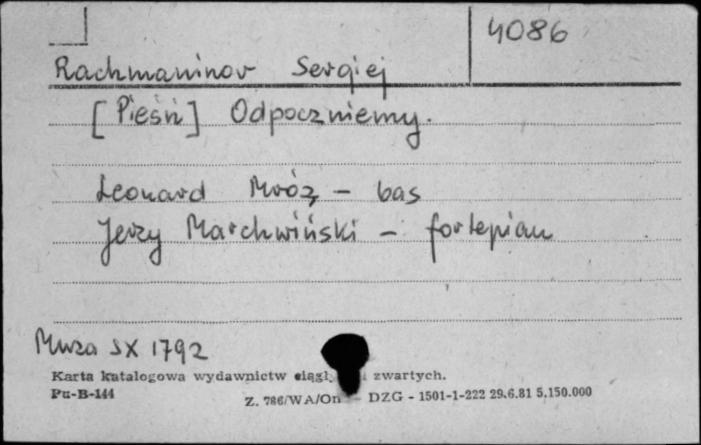 4086
Rachmaninov Sergiej
[Pieśń] Odpoczniemy.
Leonard Mróz - bas
Jerzy Marchwiński - fortepian
Muza SX 1792
Karta katalogowa wydawnictw zwartych.
Pu-B-144
Z. 786/WA/On - DZG - 1501-1-222 29.6.81 5.150.000